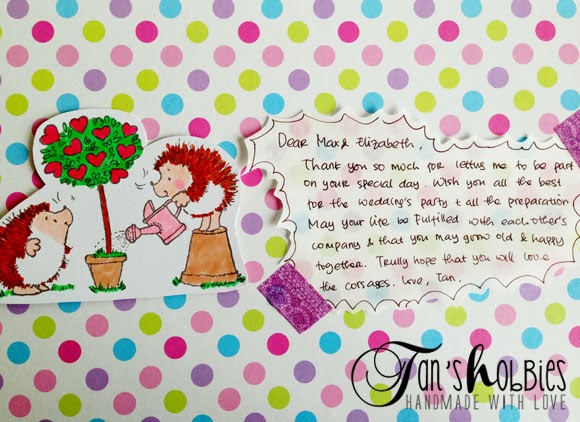 Dear Max & Elizabeth,
Thank you so much for lettus me to be part
on your special day. Wish you all the best
for the wedding's party & all the preparation
May your life be fulfilled with each other's
company & that you may grow old & happy
together. Trully hope that you will love
the corsages. Love, Tan.
Tan's hobbies
HANDMADE WITH LOVE